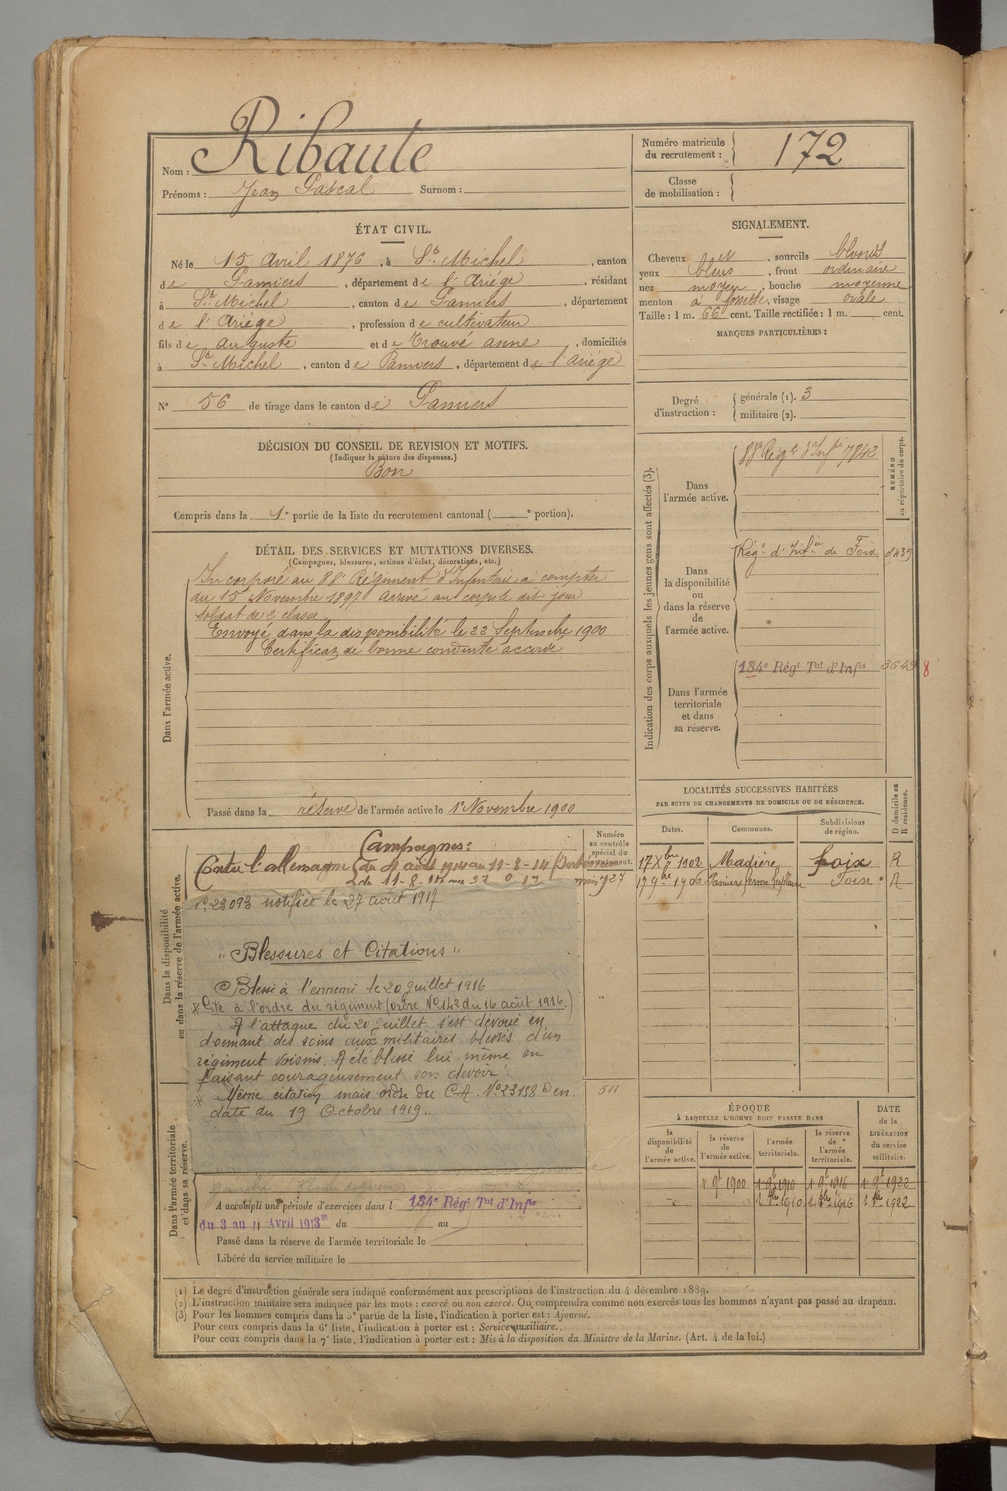 Nom : Ribaute
Prénoms : Jean Pascal Surnom :
Numéro matricule
du recrutement : 172
Classe
de mobilisation :
ÉTAT CIVIL.
Né le 15 Avril 1876, à St Michel, canton
de Pamiers, département de l'Ariége, résidant
à St Michel, canton de Pamiers, département
de l'Ariége, profession de cultivateur
fils de Auguste et de Trouvé anne, domiciliés
à St Michel, canton de Pamiers, département de l'ariége
N° 56 de tirage dans le canton de Pamiers
SIGNALEMENT.
Cheveux et, sourcils blonds
yeux bleus, front ordinaire
nez moyen, bouche moyenne
menton à fossette, visage ovale
Taille : 1 m. 66 cent. Taille rectifiée : 1 m. cent.
MARQUES PARTICULIÈRES :
Degré
d'instruction :
générale (1). 3
militaire (2).
DÉCISION DU CONSEIL DE REVISION ET MOTIFS.
(Indiquer la nature des dispenses.)
Bon
Compris dans la 1e partie de la liste du recrutement cantonal ( e portion).
DÉTAIL DES SERVICES ET MUTATIONS DIVERSES.
(Campagnes, blessures, actions d'éclat, décorations, etc.)
Dans l'armée active.
Incorporé au 88e Régiment d'Infanterie à compter
du 15 Novembre 1897 Arrivé au corps le dit jour
soldat de 2e classe
Envoyé dans la disponibilité le 22 Septembre 1900
Certificat de bonne conduite accordé
Passé dans la réserve de l'armée active le 1er Novembre 1900
Indication des corps auxquels les jeunes gens sont affectés (3).
NUMÉRO
au répertoire du corps.
Dans
l'armée active.
88e Régt d'Infie 7842
Dans
la disponibilité
ou
dans la réserve
de
l'armée active.
Régt d'Infie de Foix
Dans l'armée
territoriale
et dans
sa réserve.
134e Régt Tal d'Infie
8
LOCALITÉS SUCCESSIVES HABITÉES
PAR SUITE DE CHANGEMENTS DE DOMICILE OU DE RÉSIDENCE.
Dates. Communes. Subdivisions
de région. D domicile ou
R résidence.
17 Xbre 1902 Madière Foix R
9bre 1906 Pamiers ferme Foix R
Dans la disponibilité
ou dans la réserve de l'armée active.
Numéro
au contrôle
spécial du
recrutement.
Campagnes :
Contre l'allemagne
N° 23093 notifiée le 27 août 1917
" Blessures et Citations "
Blessé à l'ennemi le 20 juillet 1916
* Cité à l'ordre du régiment (ordre N° 142 du 16 août 1916.)
A l'attaque du 20 juillet s'est dévoué en
donnant des soins aux militaires blessés d'un
régiment voisins. A été blessé lui même en
faisant courageusement son devoir.
* Même citation mais ordre du C.A. N° 23158 D en
date du 19 Octobre 1919.
511
Dans l'armée territoriale
et dans sa réserve.
A accompli une période d'exercices dans l 134e Régt Tal d'Infie
du 3 au 11 Avril 1913 du au
Passé dans la réserve de l'armée territoriale le
Libéré du service militaire le
ÉPOQUE
À LAQUELLE L'HOMME DOIT PASSER DANS
DATE
DE LA
LIBÉRATION
du service
militaire.
la
disponibilité
de
l'armée active.
la réserve
de
l'armée active.
l'armée
territoriale.
la réserve
de
l'armée
territoriale.
1 9bre 1900 1 9bre 1910 1 9bre 1916 1 9bre 1922
1 8bre 1910 1 8bre 1916 1 8bre 1922
(1) Le degré d'instruction générale sera indiqué conformément aux prescriptions de l'instruction du 4 décembre 1889.
(2) L'instruction militaire sera indiquée par les mots : exercé ou non exercé. On comprendra comme non exercés tous les hommes n'ayant pas passé au drapeau.
(3) Pour les hommes compris dans la 5e partie de la liste, l'indication à porter est : Ajourné.
Pour ceux compris dans la 6e liste, l'indication à porter est : Service auxiliaire.
Pour ceux compris dans la 7e liste, l'indication à porter est : Mis à la disposition du Ministre de la Marine. (Art. 4 de la loi.)